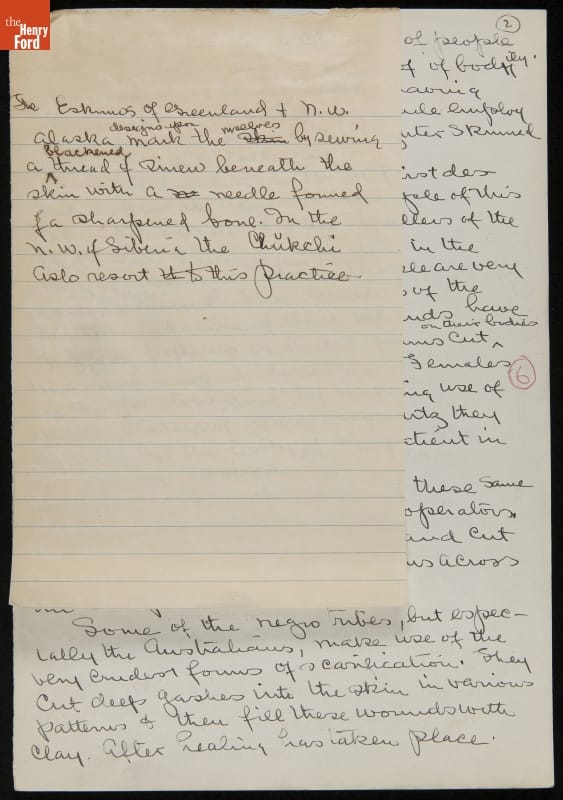 the
Henry
Ford
The Eskimos of Greenland & N.W.
designs upon mselves
alaska mark the skin by sewing
blackened
a thread of sinew beneath the
skin with a needle formed
of a sharpened bone. In the
N.W. of Siberia the Chukchi
aslo resort to this practice
2
of people
of of bodily.
having
employ
Skinned
of this
of the
in the
are very
of the
have
on their bodies
cut
Females
6
use of
they
in
these same
operators.
and cut
across
Some of the negro tribes, but espec-
ially the Australians, make use of the
very crudest forms of scarification. They
cut deep gashes into the skin in various
patterns & then fill these wounds with
clay. After healing has taken place.